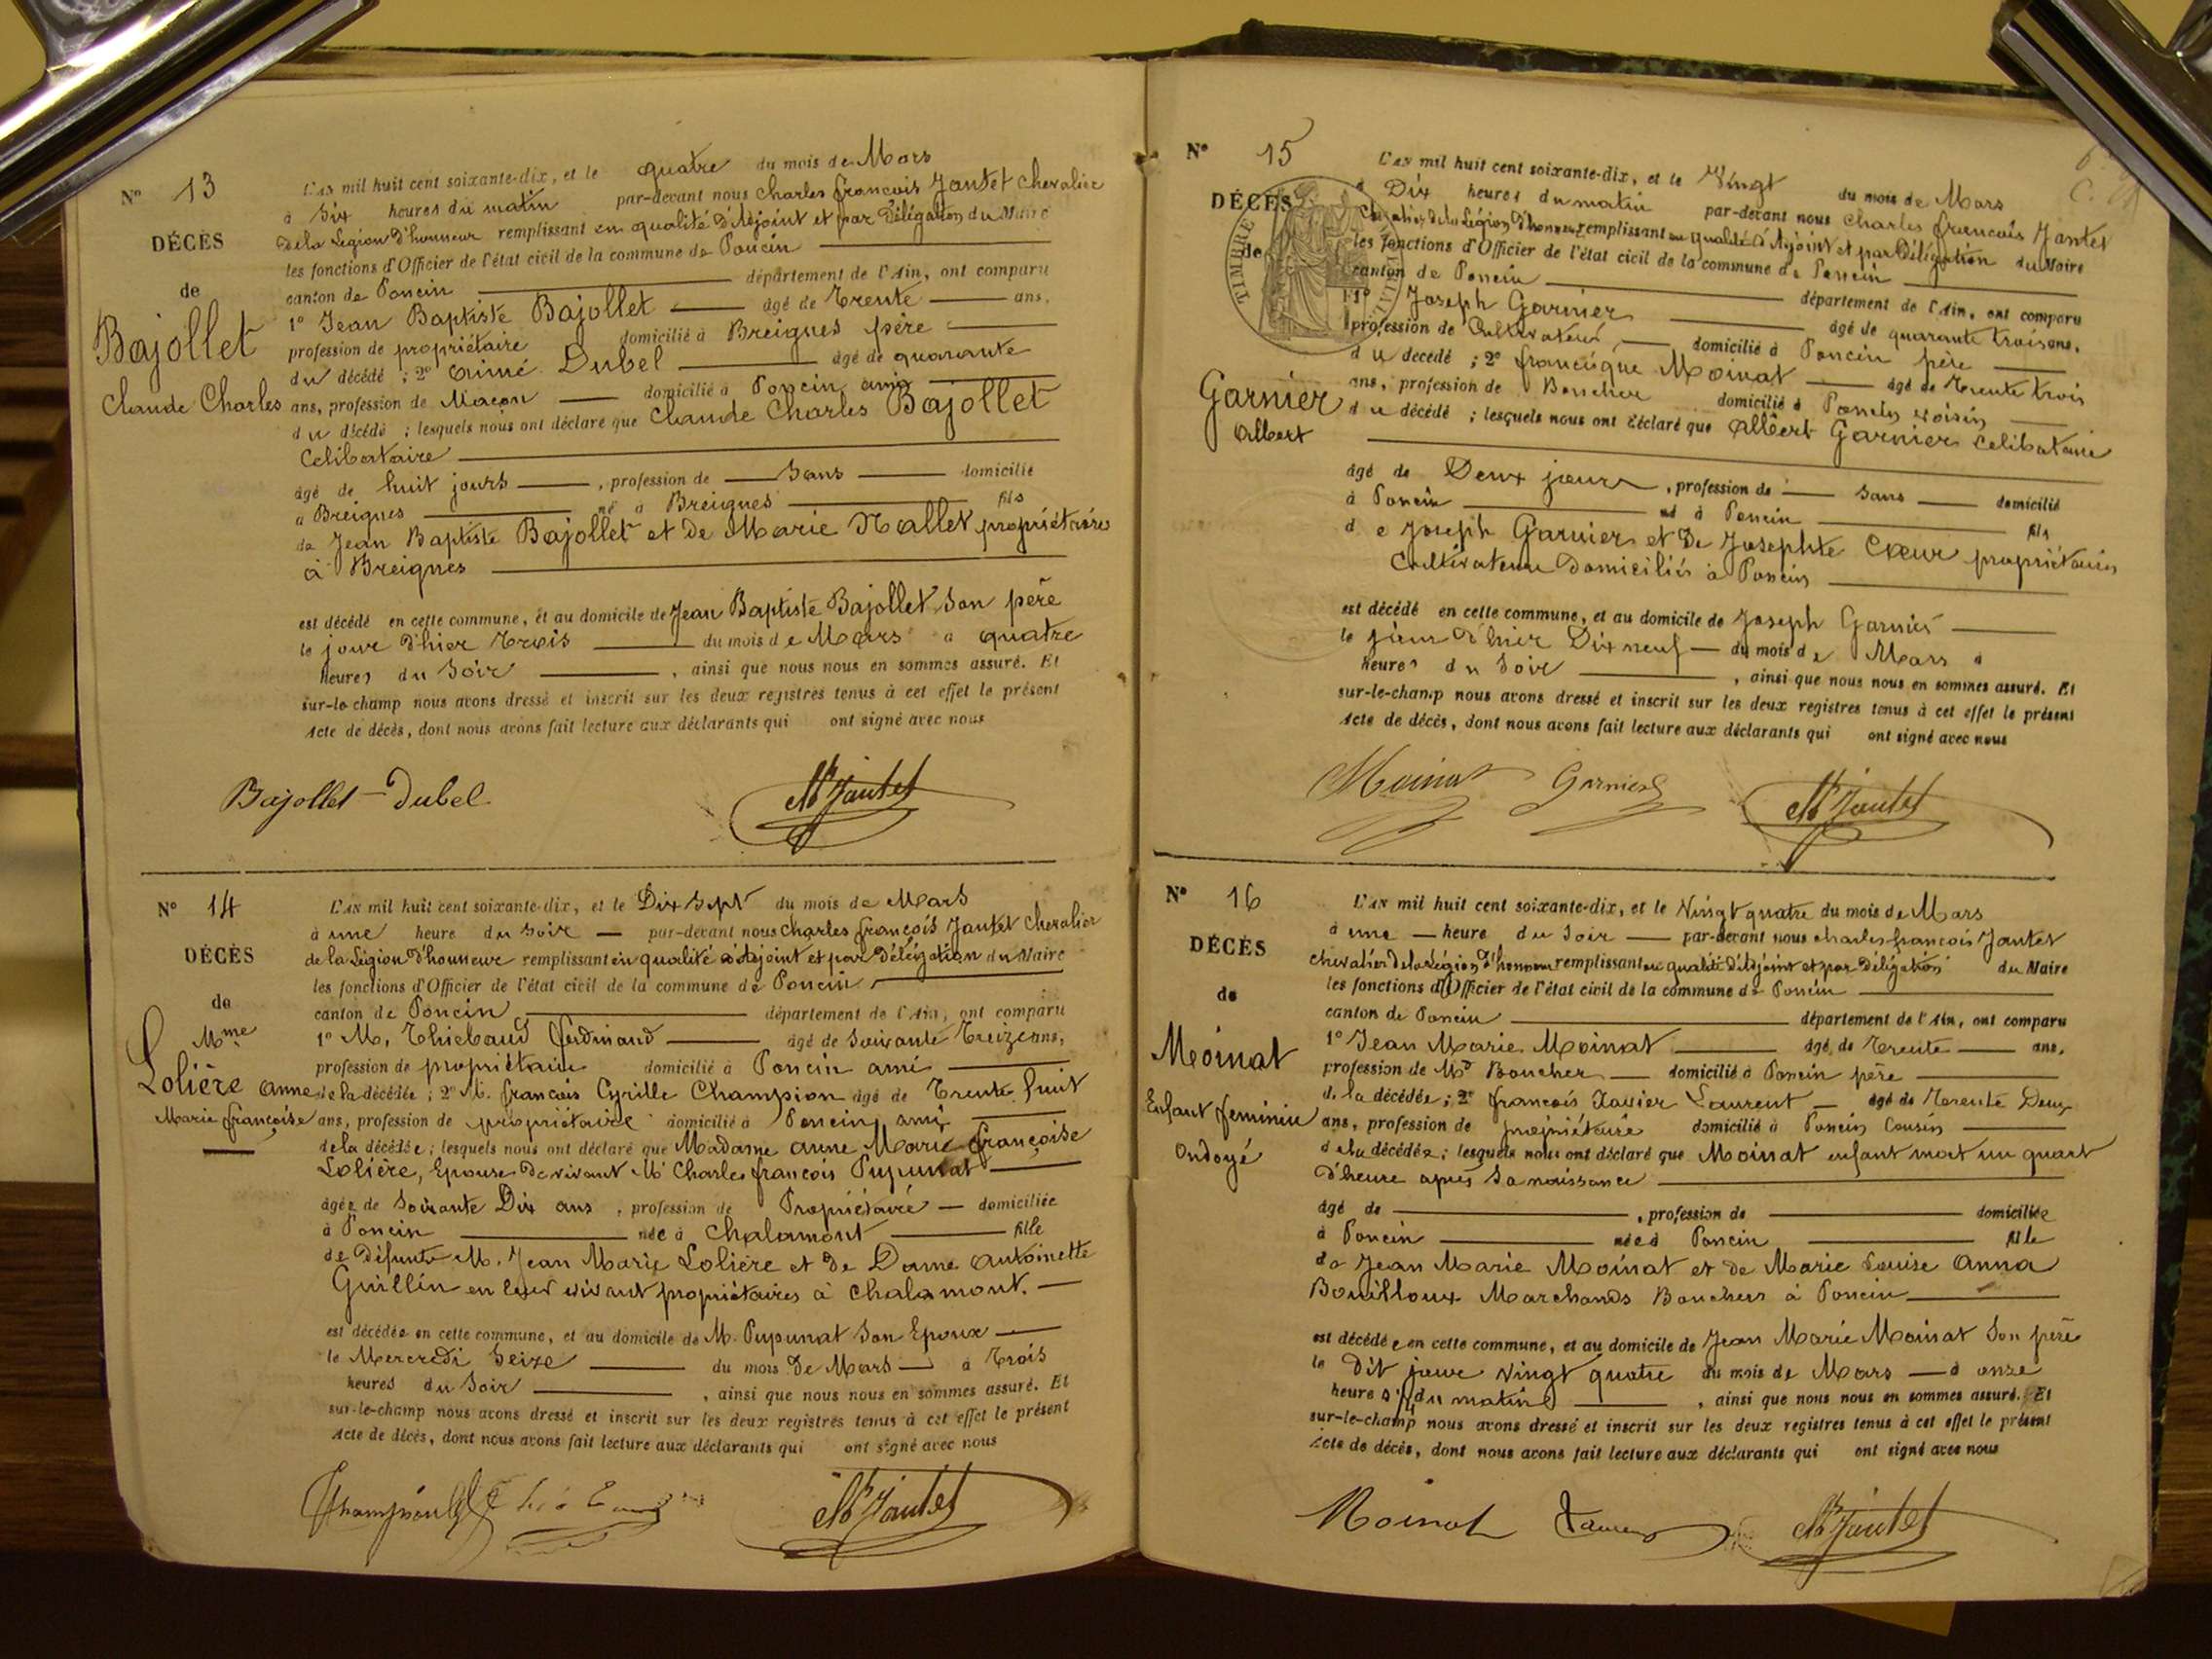 N° 13
DÉCÈS
de
Bajollet
Claude Charles
L'AN mil huit cent soixante-dix, et le quatre du mois de Mars
à Six heures du matin par-devant nous Charles françois Jantet Chevalier
de la Légion d'honneur remplissant en qualité d'Adjoint et par Délégation du Maire
les fonctions d'Officier de l'état civil de la commune de Poncin
canton de Poncin département de l'Ain, ont comparu
1° Jean Baptiste Bajollet âgé de Trente ans,
profession de propriétaire domicilié à Breignes père
du décédé ; 2° Aimé Dubel âgé de quarante
ans, profession de Maçon domicilié à Poncin ami
du décédé ; lesquels nous ont déclaré que Claude Charles Bajollet
Celibataire
âgé de huit jours , profession de Sans domicilié
à Breignes né à Breignes fils
de Jean Baptiste Bajollet et de Marie Mallet propriétaires
à Breignes
est décédé en cette commune, et au domicile de Jean Baptiste Bajollet Son père
le jour d'hier Trois du mois de Mars à quatre
heures du Soir , ainsi que nous nous en sommes assuré. Et
sur-le-champ nous avons dressé et inscrit sur les deux registres tenus à cet effet le présent
Acte de décès, dont nous avons fait lecture aux déclarants qui ont signé avec nous
Bajollet Dubel Jantet
N° 14
DÉCÈS
de
Mme
Lolière Anne
Marie françoise
L'AN mil huit cent soixante-dix, et le Dix Sept du mois de Mars
à une heure du Soir par-devant nous Charles françois Jantet Chevalier
de la Légion d'honneur remplissant en qualité d'Adjoint et par Délégation du Maire
les fonctions d'Officier de l'état civil de la commune de Poncin
canton de Poncin département de l'Ain, ont comparu
1° M. Thiebaud ferdinand âgé de Soixante Treize ans,
profession de propriétaire domicilié à Poncin ami
de la décédée ; 2° M. françois Cyrille Champion âgé de Trente huit
ans, profession de propriétaire domicilié à Poncin ami
de la décédée ; lesquels nous ont déclaré que Madame Anne Marie françoise
Lolière, Epouse de vivant Mr Charles françois Pupunat
âgée de Soixante Dix ans , profession de Propriétaire domiciliée
à Poncin née à Chalamont fille
de Défunts M. Jean Marie Lolière et de Dame Antoinette
Guillin en leur vivant propriétaires à Chalamont.
est décédée en cette commune, et au domicile de M. Pupunat Son Epoux
le Mercredi Seize du mois De Mars à Trois
heures du Soir , ainsi que nous nous en sommes assuré. Et
sur-le-champ nous avons dressé et inscrit sur les deux registres tenus à cet effet le présent
Acte de décès, dont nous avons fait lecture aux déclarants qui ont signé avec nous
Jantet
N° 15
DÉCÈS
de
TIMBRE
Garnier
Albert
L'AN mil huit cent soixante-dix, et le Vingt du mois de Mars
à Dix heures du matin par-devant nous Charles françois Jantet
Chevalier de la Légion d'honneur remplissant en qualité d'Adjoint et par Délégation du Maire
les fonctions d'Officier de l'état civil de la commune de Poncin
canton de Poncin département de l'Ain, ont comparu
1° Joseph Garnier âgé de quarante trois ans,
profession de Cultivateur domicilié à Poncin père
du décédé ; 2° françisque Moinat âgé de Trente trois
ans, profession de Boucher domicilié à Poncin voisin
du décédé ; lesquels nous ont déclaré que Albert Garnier Celibataire
âgé de Deux jours , profession de Sans domicilié
à Poncin né à Poncin fils
de Joseph Garnier et De Josephte Coeur propriétaires
Cultivateurs Domiciliés à Poncin
est décédé en cette commune, et au domicile de Joseph Garnier
le jour d'hier Dix neuf du mois de Mars à
heures du Soir , ainsi que nous nous en sommes assuré. Et
sur-le-champ nous avons dressé et inscrit sur les deux registres tenus à cet effet le présent
Acte de décès, dont nous avons fait lecture aux déclarants qui ont signé avec nous
Moinat Garnier Jantet
N° 16
DÉCÈS
de
Moinat
Enfant feminin
Ondoyé
L'AN mil huit cent soixante-dix, et le Vingt quatre du mois de Mars
à une heure du Soir par-devant nous Charles françois Jantet
Chevalier de la Légion d'honneur remplissant en qualité d'Adjoint et par Délégation du Maire
les fonctions d'Officier de l'état civil de la commune de Poncin
canton de Poncin département de l'Ain, ont comparu
1° Jean Marie Moinat âgé de Trente ans,
profession de Md Boucher domicilié à Poncin père
de la décédée ; 2° françois Xavier Laurent âgé de Trente Deux
ans, profession de propriétaire domicilié à Poncin Cousin
de la décédée ; lesquels nous ont déclaré que Moinat enfant mort un quart
d'heure après Sa naissance
âgé de , profession de domiciliée
à Poncin née à Poncin fille
de Jean Marie Moinat et de Marie Louise Anna
Bouilloux Marchands Bouchers à Poncin
est décédée en cette commune, et au domicile de Jean Marie Moinat Son père
le Dit jour Vingt quatre du mois de Mars à onze
heures du matin , ainsi que nous nous en sommes assuré. Et
sur-le-champ nous avons dressé et inscrit sur les deux registres tenus à cet effet le présent
Acte de décès, dont nous avons fait lecture aux déclarants qui ont signé avec nous
Moinat Jantet